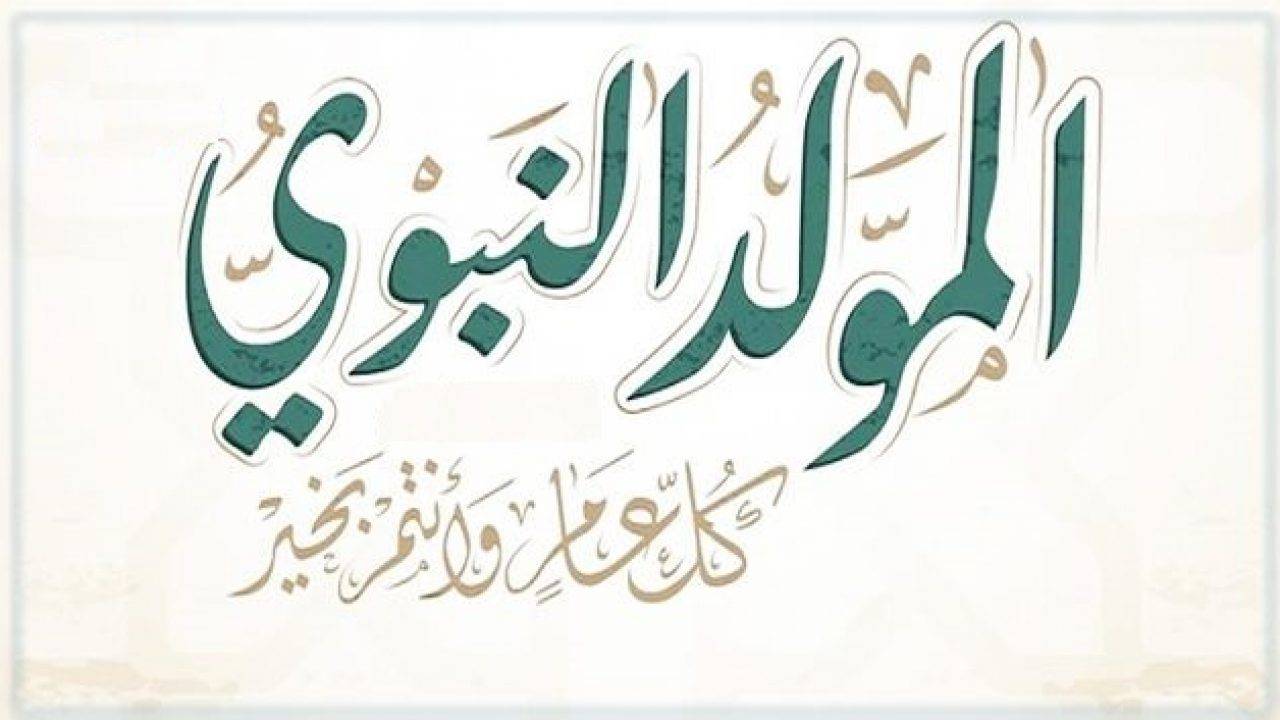 المَوْلِدُ النَّبَوِيُّ
كُلّ عَامٍ وَأَنْتُمْ بَخَيْرْ